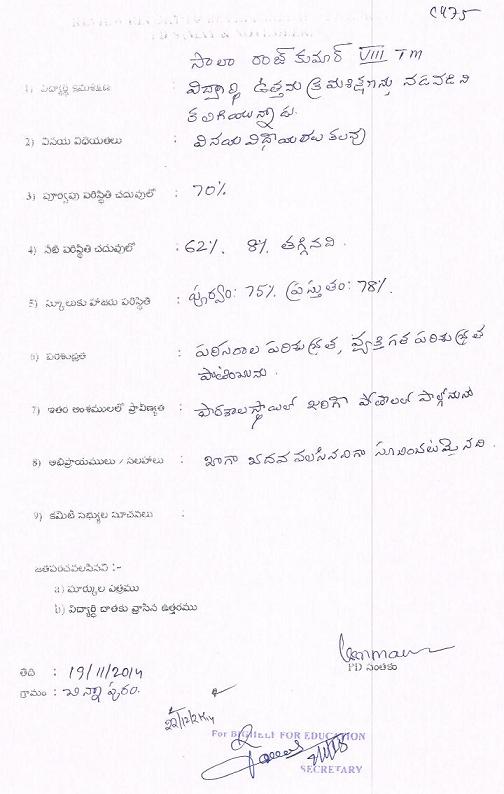 C475
సాలా రాజ్ కుమార్ VIII TM
1) విద్యార్థి క్రమశిక్షణ : విద్యార్థి ఉత్తమ క్రమశిక్షణను నడవడిని
కలిగియున్నాడు.
2) వినయ విధేయతలు : వినయ విధేయతలు కలవు
3) పూర్వపు పరిస్థితి చదువులో : 70%
4) నేటి పరిస్థితి చదువులో : 62%. 8% తగ్గినది.
5) స్కూలుకు హాజరు పరిస్థితి : పూర్వం: 75% ప్రస్తుతం: 78%.
6) పరిశుభ్రత : పరిసరాల పరిశుభ్రత, వ్యక్తిగత పరిశుభ్రత
పాటించును.
7) ఇతర అంశములలో ప్రావీణ్యత : పాఠశాలస్థాయిలో జరిగే పోటీలలో పాల్గొనును
8) అభిప్రాయములు / సలహాలు : బాగా చదవ వలసినదిగా సూచించటమైనది.
9) కమిటీ సభ్యుల సూచనలు :
జతపరచవలసినవి :-
a) మార్కుల పత్రము
b) విద్యార్థి దాతకు వ్రాసిన ఉత్తరము
PD సంతకం
తేది : 19/11/2014
గ్రామం :
22/12/2k14
For BIGHELP FOR EDUCATION
SECRETARY